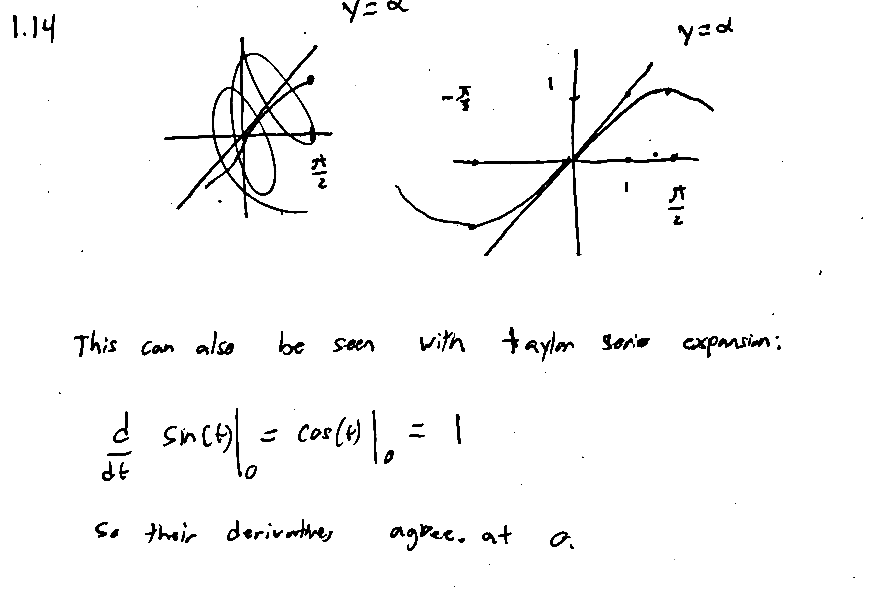 1.14
y=α
y=α
1
-π/2
π/2
1
π/2
This can also be seen with taylor series expansion:
d/dt sin(t)|₀ = cos(t)|₀ = 1
So their derivatives agree. at 0.